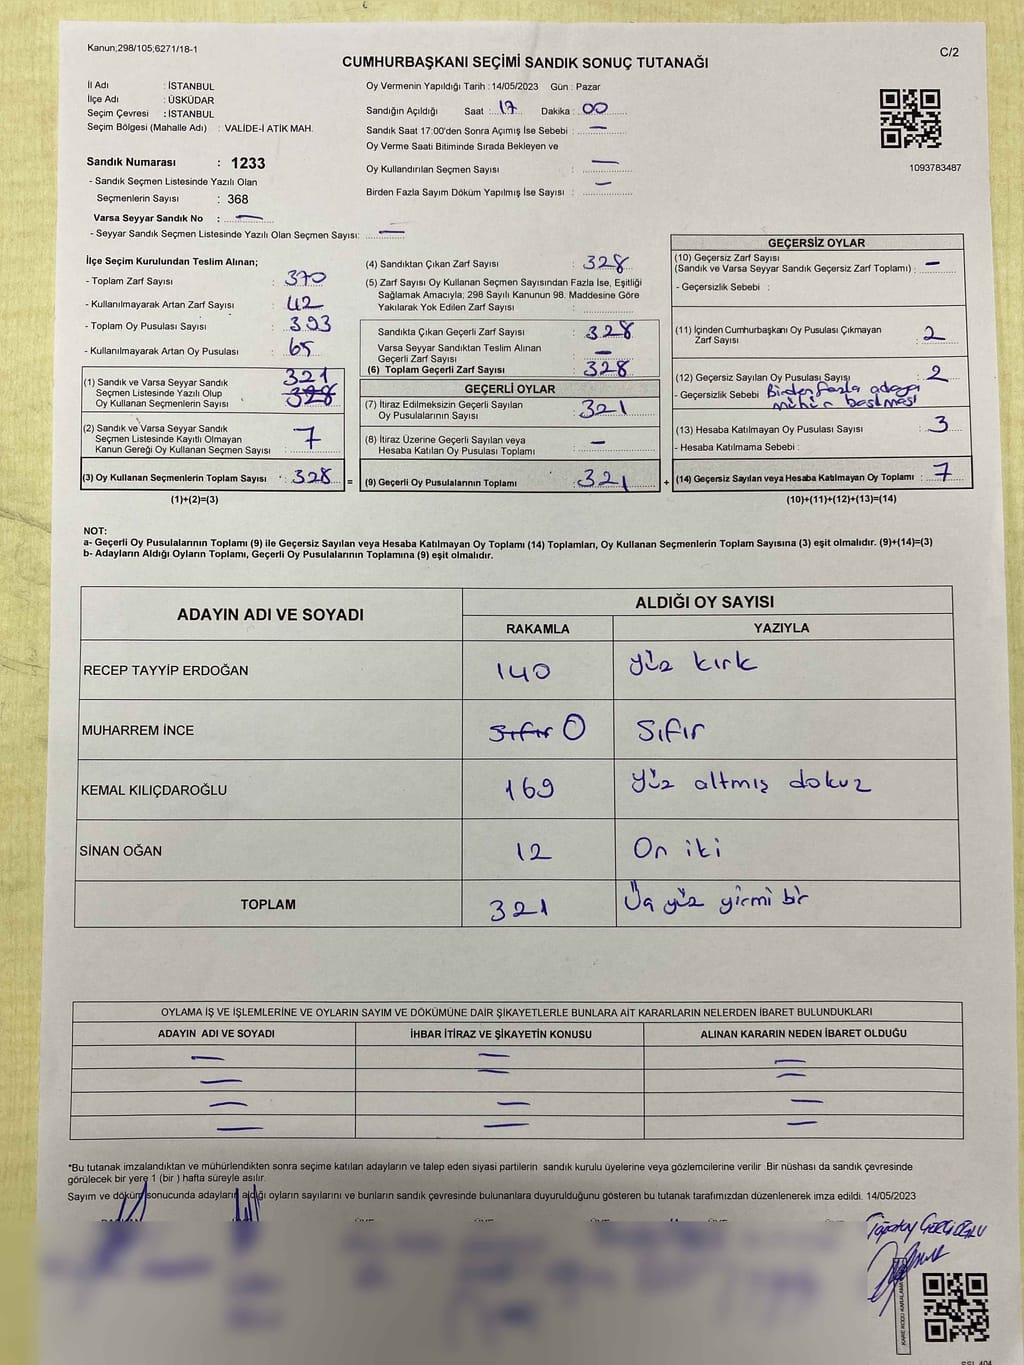 Kanun;298/105;6271/18-1
C/2
CUMHURBAŞKANI SEÇİMİ SANDIK SONUÇ TUTANAĞI
İl Adı : İSTANBUL
İlçe Adı : ÜSKÜDAR
Seçim Çevresi : İSTANBUL
Seçim Bölgesi (Mahalle Adı) : VALİDE-İ ATİK MAH.
Sandık Numarası : 1233
- Sandık Seçmen Listesinde Yazılı Olan
Seçmenlerin Sayısı : 368
Varsa Seyyar Sandık No : —
- Seyyar Sandık Seçmen Listesinde Yazılı Olan Seçmen Sayısı: —
Oy Vermenin Yapıldığı Tarih : 14/05/2023 Gün : Pazar
Sandığın Açıldığı Saat : 17 Dakika : 00
Sandık Saat 17:00'den Sonra Açımış İse Sebebi : —
Oy Verme Saati Bitiminde Sırada Bekleyen ve
Oy Kullandırılan Seçmen Sayısı : —
Birden Fazla Sayım Döküm Yapılmış İse Sayısı : —
1093783487
İlçe Seçim Kurulundan Teslim Alınan;
- Toplam Zarf Sayısı : 370
- Kullanılmayarak Artan Zarf Sayısı : 42
- Toplam Oy Pusulası Sayısı : 393
- Kullanılmayarak Artan Oy Pusulası : 65
(1) Sandık ve Varsa Seyyar Sandık 321
Seçmen Listesinde Yazılı Olup : 328
Oy Kullanan Seçmenlerin Sayısı
(2) Sandık ve Varsa Seyyar Sandık
Seçmen Listesinde Kayıtlı Olmayan : 7
Kanun Gereği Oy Kullanan Seçmen Sayısı
(3) Oy Kullanan Seçmenlerin Toplam Sayısı : 328 =
(1)+(2)=(3)
(4) Sandıktan Çıkan Zarf Sayısı : 328
(5) Zarf Sayısı Oy Kullanan Seçmen Sayısından Fazla İse, Eşitliği
Sağlamak Amacıyla; 298 Sayılı Kanunun 98. Maddesine Göre
Yakılarak Yok Edilen Zarf Sayısı :
Sandıkta Çıkan Geçerli Zarf Sayısı : 328
Varsa Seyyar Sandıktan Teslim Alınan
Geçerli Zarf Sayısı : —
(6) Toplam Geçerli Zarf Sayısı : 328
GEÇERLİ OYLAR
(7) İtiraz Edilmeksizin Geçerli Sayılan
Oy Pusulalarının Sayısı : 321
(8) İtiraz Üzerine Geçerli Sayılan veya
Hesaba Katılan Oy Pusulası Toplamı : —
(9) Geçerli Oy Pusulalarının Toplamı : 321 +
GEÇERSİZ OYLAR
(10) Geçersiz Zarf Sayısı
(Sandık ve Varsa Seyyar Sandık Geçersiz Zarf Toplamı) : —
- Geçersizlik Sebebi :
(11) İçinden Cumhurbaşkanı Oy Pusulası Çıkmayan
Zarf Sayısı : 2
(12) Geçersiz Sayılan Oy Pusulası Sayısı : 2
- Geçersizlik Sebebi Birden fazla adaya
mühür basılması
(13) Hesaba Katılmayan Oy Pusulası Sayısı : 3
- Hesaba Katılmama Sebebi :
(14) Geçersiz Sayılan veya Hesaba Katılmayan Oy Toplamı : 7
(10)+(11)+(12)+(13)=(14)
NOT:
a- Geçerli Oy Pusulalarının Toplamı (9) ile Geçersiz Sayılan veya Hesaba Katılmayan Oy Toplamı (14) Toplamları, Oy Kullanan Seçmenlerin Toplam Sayısına (3) eşit olmalıdır. (9)+(14)=(3)
b- Adayların Aldığı Oyların Toplamı, Geçerli Oy Pusulalarının Toplamına (9) eşit olmalıdır.
ADAYIN ADI VE SOYADI
ALDIĞI OY SAYISI
RAKAMLA YAZIYLA
RECEP TAYYİP ERDOĞAN 140 Yüz kırk
MUHARREM İNCE Sıfır 0 Sıfır
KEMAL KILIÇDAROĞLU 169 Yüz altmış dokuz
SİNAN OĞAN 12 On iki
TOPLAM 321 Üç yüz yirmi bir
OYLAMA İŞ VE İŞLEMLERİNE VE OYLARIN SAYIM VE DÖKÜMÜNE DAİR ŞİKAYETLERLE BUNLARA AİT KARARLARIN NELERDEN İBARET BULUNDUKLARI
ADAYIN ADI VE SOYADI İHBAR İTİRAZ VE ŞİKAYETİN KONUSU ALINAN KARARIN NEDEN İBARET OLDUĞU
— — —
— — —
— — —
— — —
*Bu tutanak imzalandıktan ve mühürlendikten sonra seçime katılan adayların ve talep eden siyasi partilerin sandık kurulu üyelerine veya gözlemcilerine verilir .Bir nüshası da sandık çevresinde
görülecek bir yere 1 (bir ) hafta süreyle asılır.
Sayım ve döküm sonucunda adayların aldığı oyların sayılarını ve bunların sandık çevresinde bulunanlara duyurulduğunu gösteren bu tutanak tarafımızdan düzenlenerek imza edildi. 14/05/2023